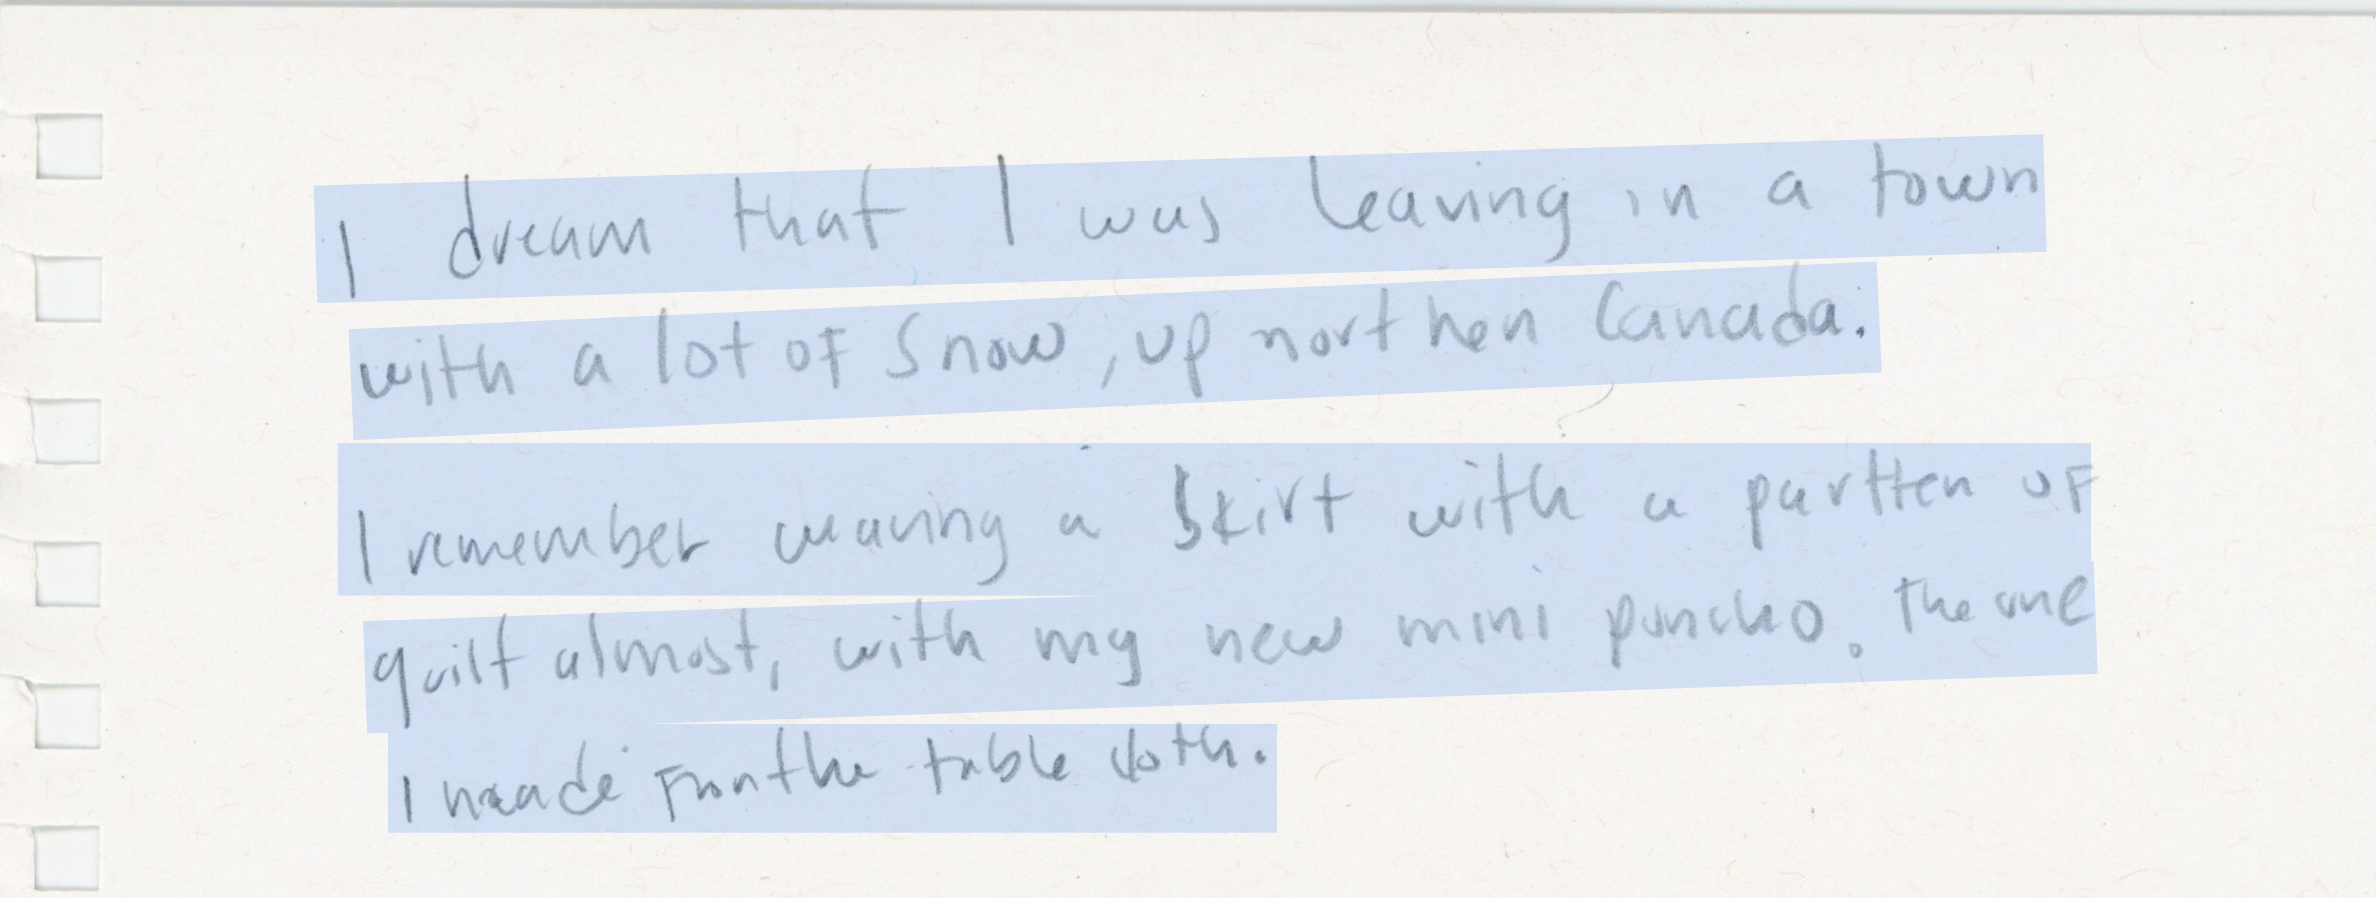 I dream that I was leaving in a town
with a lot of snow, up northen Canada.
I remember wearing a skirt with a partten of
quilt almost, with my new mini poncho. The one
I made from the table cloth.